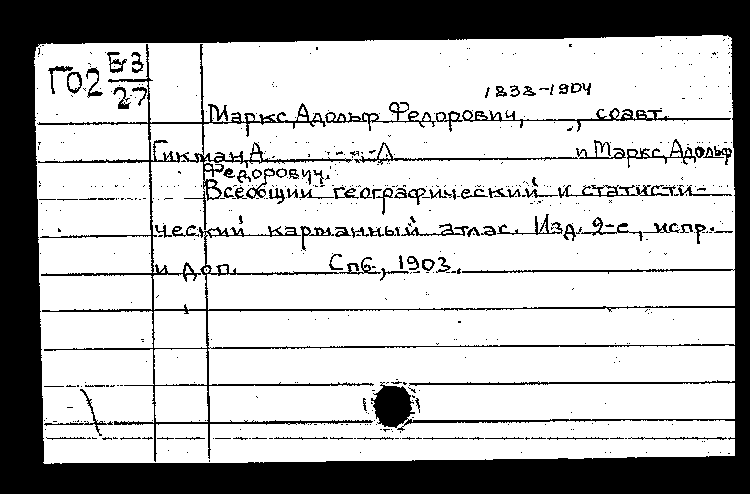 ГО2 Б 3
27
1838-1904
Маркс, Адольф Федорович, , соавт.
Гикман, А и Маркс, Адольф
Федорович.
Всеобщий географический и статисти-
ческий карманный атлас. Изд. 2-е, испр.
и доп. Спб., 1903.